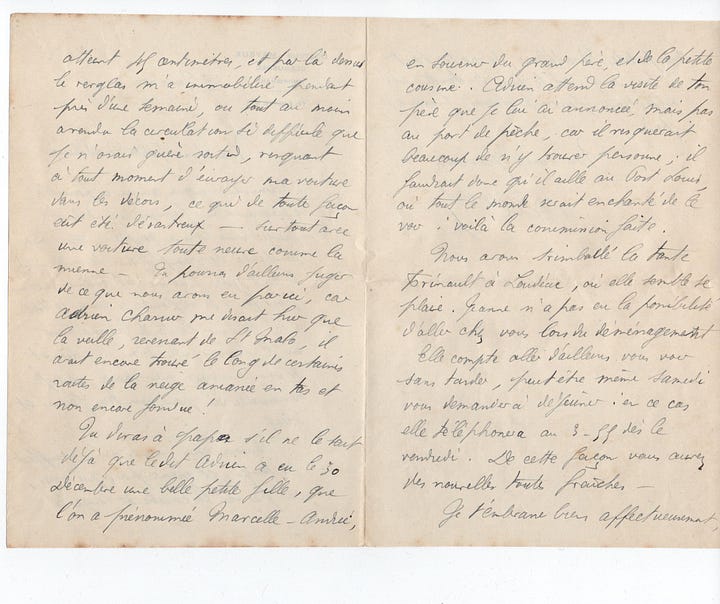 atteint 45 centimètres, et par là dessus
le verglas m'a immobilisé pendant
près d'une semaine, ou tout au moins
a rendu la circulation si difficile que
je n'osais guère sortir, risquant
à tout moment d'envoyer ma voiture
dans les décors, ce qui de toute façon
eût été désastreux — surtout avec
une voiture toute neuve comme la
mienne — Tu pourras d'ailleurs juger
de ce que nous avons eu par ici, car
Adrien me disait hier que
la veille, revenant de St Malo, il
avait encore trouvé le long de certaines
routes de la neige amassée en tas et
non encore fondue !
Tu diras à papa s'il ne le sait
déjà que ledit Adrien a eu le 30
Décembre une belle petite fille, que
l'on a prénommée Marcelle-Andrée,
en souvenir du grand père, et de la petite
cousine. Adrien attend la visite de ton
père que je lui ai annoncée, mais pas
au port de pêche, car il risquerait
beaucoup de n'y trouver personne ; il
faudrait donc qu'il aille au Port Louis,
où tout le monde serait enchanté de le
voir : voilà la commission faite.
Nous avons trimballé la tante
à Loudéac, où elle semble se
plaire. Jeanne n'a pas eu la possibilité
d'aller chez vous lors du déménagement
Elle compte aller d'ailleurs vous voir
sans tarder, peut être même samedi
vous demander à déjeuner : en ce cas
elle téléphonera au 3-55 dès le
vendredi. De cette façon vous aurez
des nouvelles toutes fraîches —
Je t'embrasse bien affectueusement,